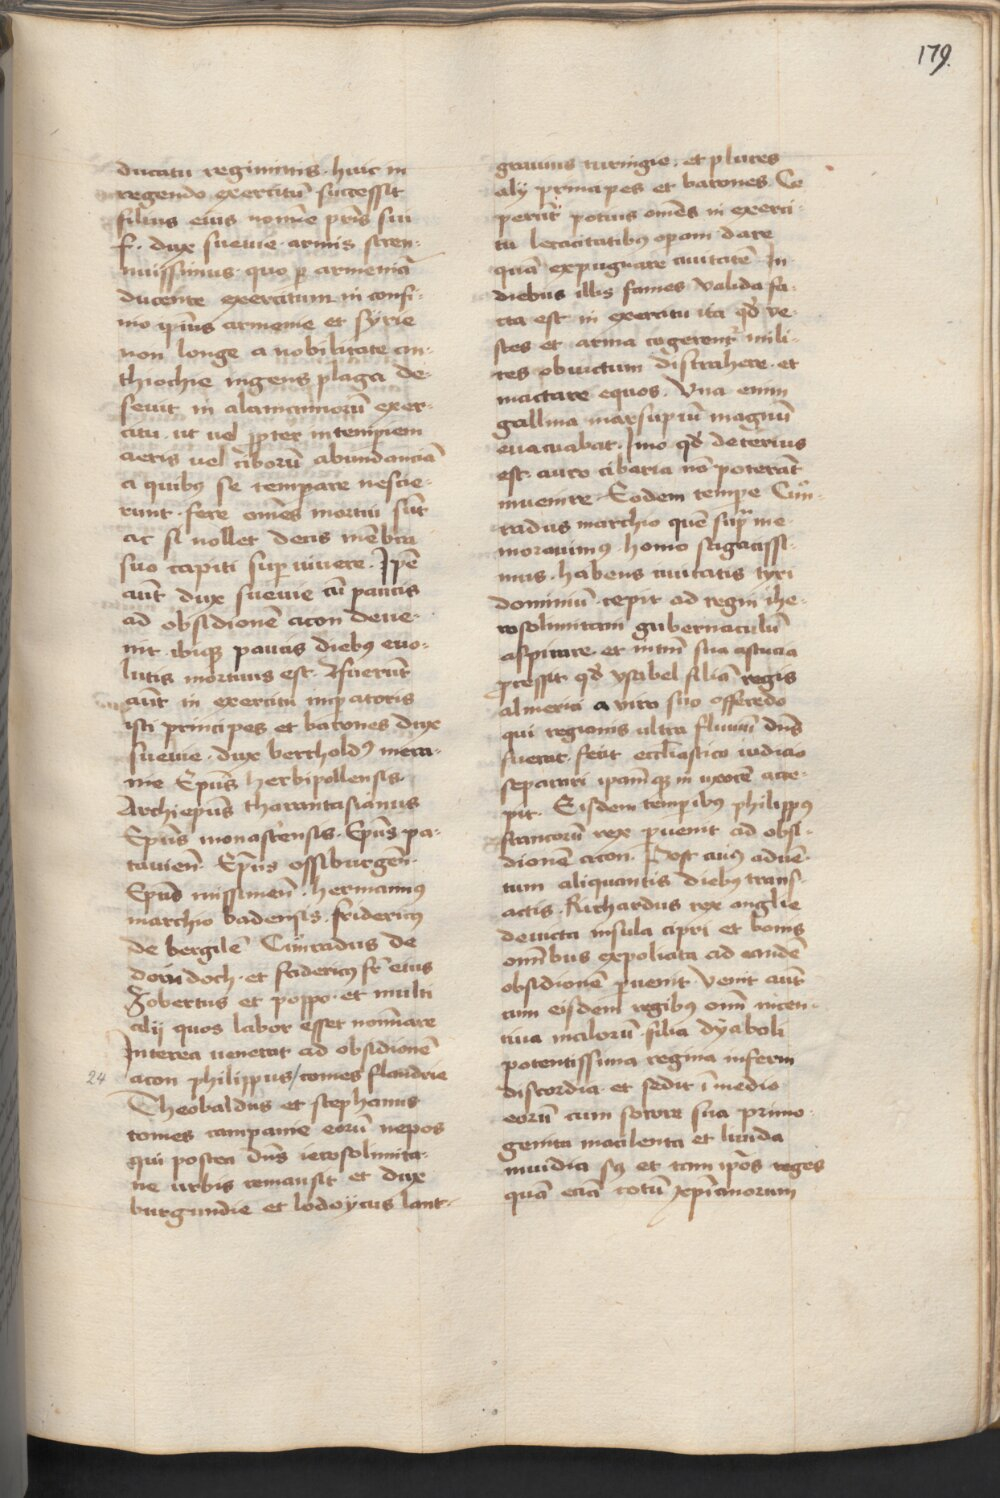 179.
ducatu regiminis. huic in
regendo exercitū successit
filius eius nomīe pris sui
f. dux sueuie armis stren-
nuissimus. quo ꝑ armeniā
ducente exercitum in confi-
nio ipīus armenie et syrie
non longe a nobilitate an-
thiochie ingens plaga de-
seuit in alamannorū exer-
citu. ut vel ꝓpter intempiem
aeris vel ciborū abundanciā
a quibꝰ se temperare nescie-
runt. fere omēs mortui sūt
ac si nollet decus mēbra
suo capiti suꝑ viuere. Ipē
aūt dux sueuie cū paucis
ad obsidionē acon deue-
nit ibiqꝫ paucis diebꝰ euo-
lutis mortuus est. Affuerūt
aūt in exercitu impatoris
isti principes et barones dux
sueuie. dux bertholdꝰ mera-
nie Epūs herbipollensis
Archiepūs tharantasianus
Epūs monastensis. Epūs pa-
tauien̄. Epūs ossiburgen̄.
Epūs missinen̄. hermannꝰ
marchio badensis. fridericꝰ
de bergilē Cunradus de
dorn doch. et fridericꝰ fr̄ eius
Zobertus et poppo. et multi
alij quos labor esset nomīare
Interea venerat ad obsidionē
24 acon philippus/comes flandrie
Theobaldus et stephanus
comes campanie eorū nepos
qui postea dn̄s ierosolimita-
ne urbis remansit et dux
burgundie et lodoycus lant-
grauius turingie. et plures
alij principes et barones Ce
perūt potius omēs in exerci-
tu locacitatibꝰ opam dare
quā expugnare ciuitatē In
diebus illis fames valida fa-
cta est in exercitu ita qd̄ ve-
stes et arma cogerent̄ mili-
tes ob victum distrahere. et
mactare equos. Una enim
gallina marsupiū magnū
euacuabat. Imo qd̄ deterius
est. auro cibaria nō poterāt
inuenire. Eodem tempe Cun-
radus marchio quē supͣ me-
morauimꝰ homo sagacissi-
mus. habens ciuitatis tyri
dominiū. cepit ad regni ihe-
rosolimitani gubernaculū
aspirare. et intm̄ sua astucia
ꝓcessit qd̄ ysabel filiā regis
almerici a viro suo offeredo
qui regionis ultra fluuiū dn̄s
fuerat. fecit eccl̄iastico iudicio
separari ipamqꝫ in uxorē acce-
pit. Eisdem temporibꝰ philippꝰ
francorū rex ꝑuenit ad obsi-
dionē acon. Post cuiꝰ aduē-
tum aliquantis diebꝰ trans-
actis. Richardus rex anglie
deuicta insula cipri et bonis
omībus expoliata ad eandē
obsidionē ꝑuenit. Venit aūt
cum eisdem regibꝰ omī incen-
tiua malorū filia dyaboli
potentissima regina inferni
discordia. et sedit ī medio
eorū cum sorore sua primo-
genita macilenta et liuida
inuidia sꝫ et tam ip̄os reges
quā eciā totū xp̄ianorum